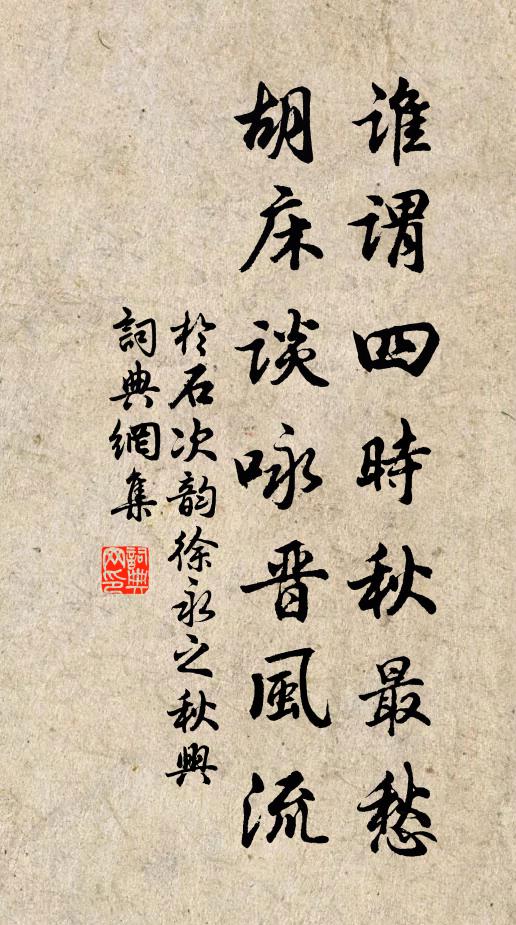 誰謂四時秋最愁
胡床談咏晋風流
於石次韵徐永之秋興
詞典網集
詞典
网印